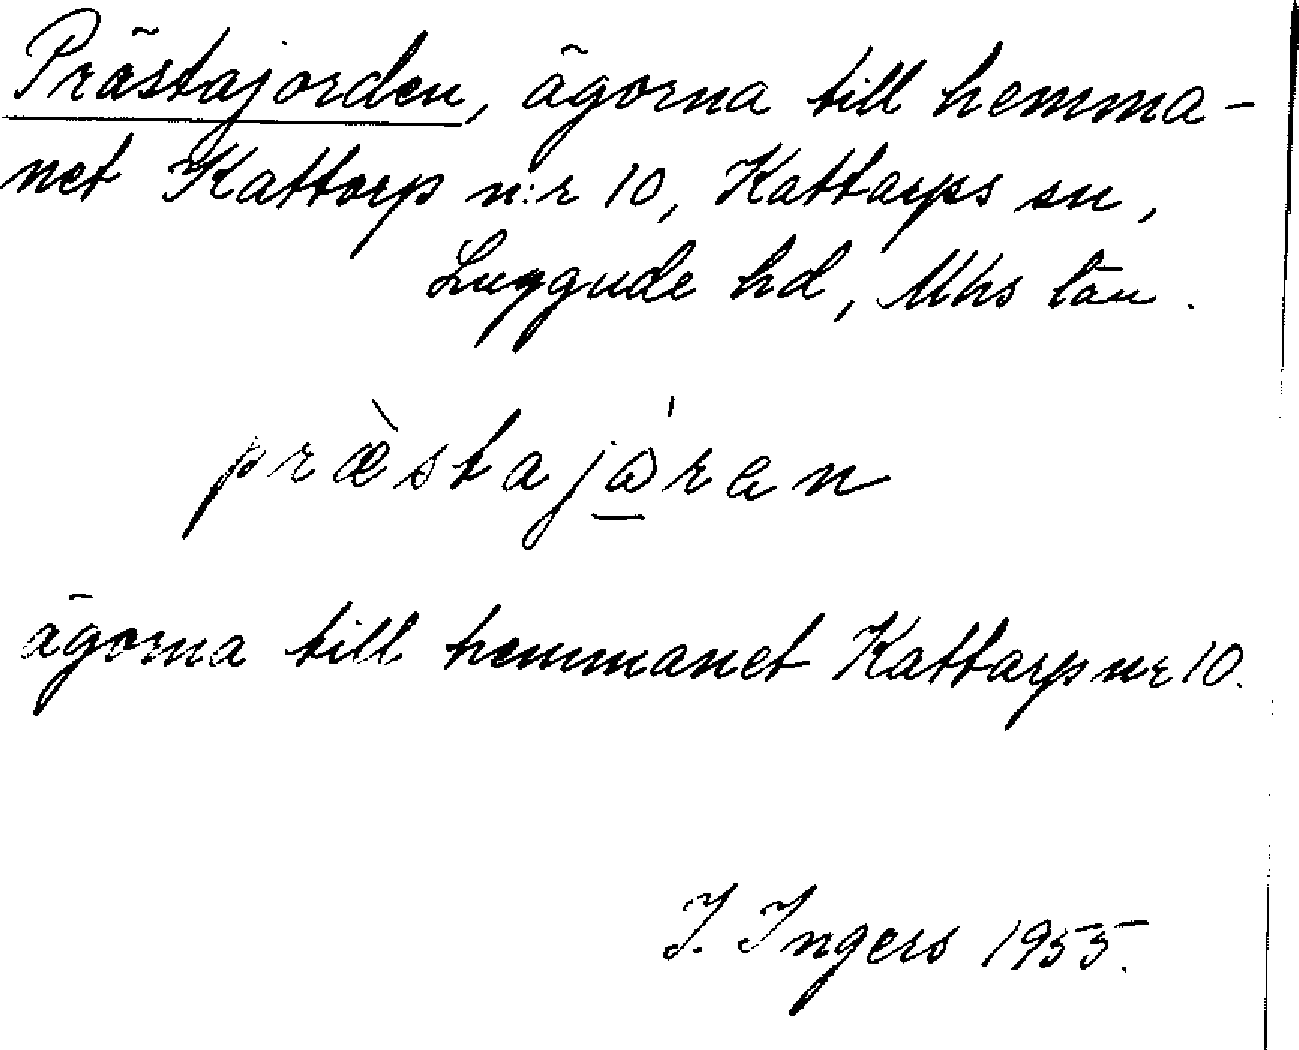 Prästajorden, ägorna till hemma-
net Kattarp n:r 10, Kattarps sn,
Luggude hd, Mhs län.
præ̀stajá̱ren
ägorna till hemmanet Kattarp nr 10.
I. Ingers 1955.